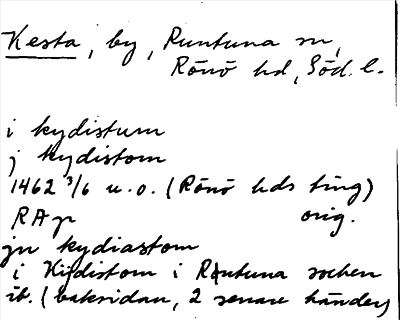 Kesta, by, Runtuna sn,
Rönö hd, Söd. l.
i kydistum
j kydistom
1462 3/6 u.o. (Rönö hds ting)
RAp orig.
jn kydiastom
i Kifdistom i Rontuna sochen
ib. (baksidan, 2 senare händer)